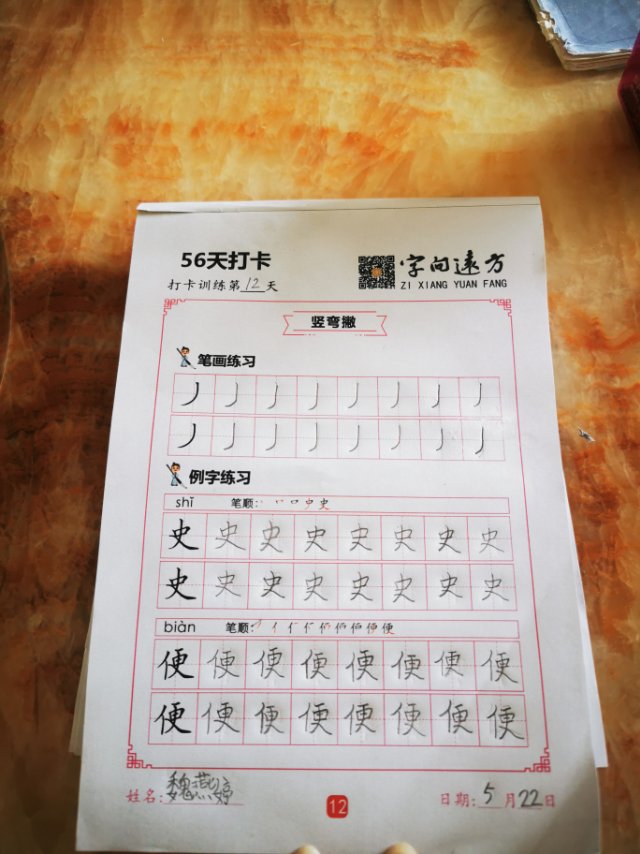 56天打卡
字向远方
打卡训练第12天
ZI XIANG YUAN FANG
竖弯撇
笔画练习
丿 丿 丿 丿 丿 丿 丿 丿
丿 丿 丿 丿 丿 丿 丿 丿
例字练习
shǐ 笔顺:丶 口 口 史 史
史 史 史 史 史 史 史 史
史 史 史 史 史 史 史 史
biàn 笔顺:
便 便 便 便 便 便 便 便
便 便 便 便 便 便 便 便
姓名:魏燕婷 12 日期:5月22日